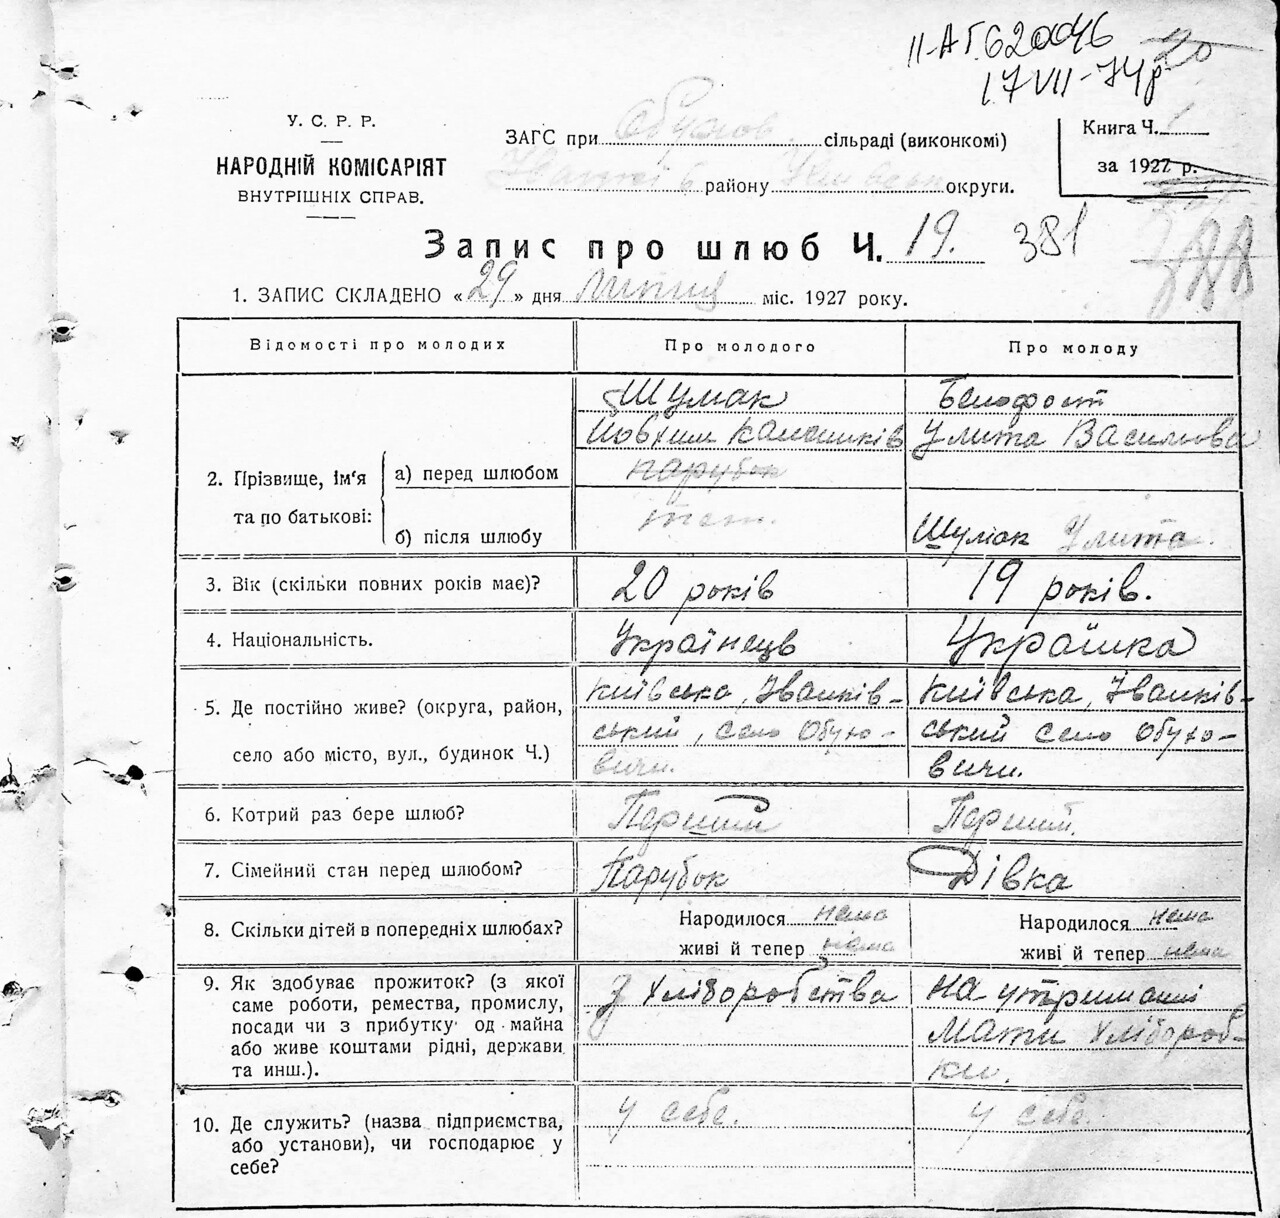 ІІ-АГ 620046 20
17 VII-74р
У. С. Р. Р.
НАРОДНІЙ КОМІСАРІЯТ
ВНУТРІШНІХ СПРАВ.
ЗАГС при Обухов. сільраді (виконкомі)
Іванків району Київськ округи.
Книга Ч. 1
за 1927 р.
Запис про шлюб Ч. 19. 381
1. ЗАПИС СКЛАДЕНО « 29 » дня липця міс. 1927 року.
Відомості про молодих Про молодого Про молоду
2. Прізвище, ім'я та по батькові:
а) перед шлюбом
Шумак
Йовхим
парубок
Улита Василова
б) після шлюбу
теж.
Шумак Улита.
3. Вік (скільки повних років має)? 20 років 19 років.
4. Національність. Українець Українка
5. Де постійно живе? (округа, район,
село або місто, вул., будинок Ч.)
Київська, Іванків-
ський, село Обухо-
вичи.
Київська, Іванків-
ський село Обухо-
вичи.
6. Котрий раз бере шлюб? Перший Перший.
7. Сімейний стан перед шлюбом? Парубок Дівка
8. Скільки дітей в попередніх шлюбах?
Народилося нема
живі й тепер нема
Народилося нема
живі й тепер нема
9. Як здобуває прожиток? (з якої
саме роботи, ремества, промислу,
посади чи з прибутку од майна
або живе коштами рідні, держави
та инш.).
З хліборобства
На утриманні
Мати хлібороб-
ки.
10. Де служить? (назва підприємства,
або установи), чи господарює у
себе?
у себе.
у себе.